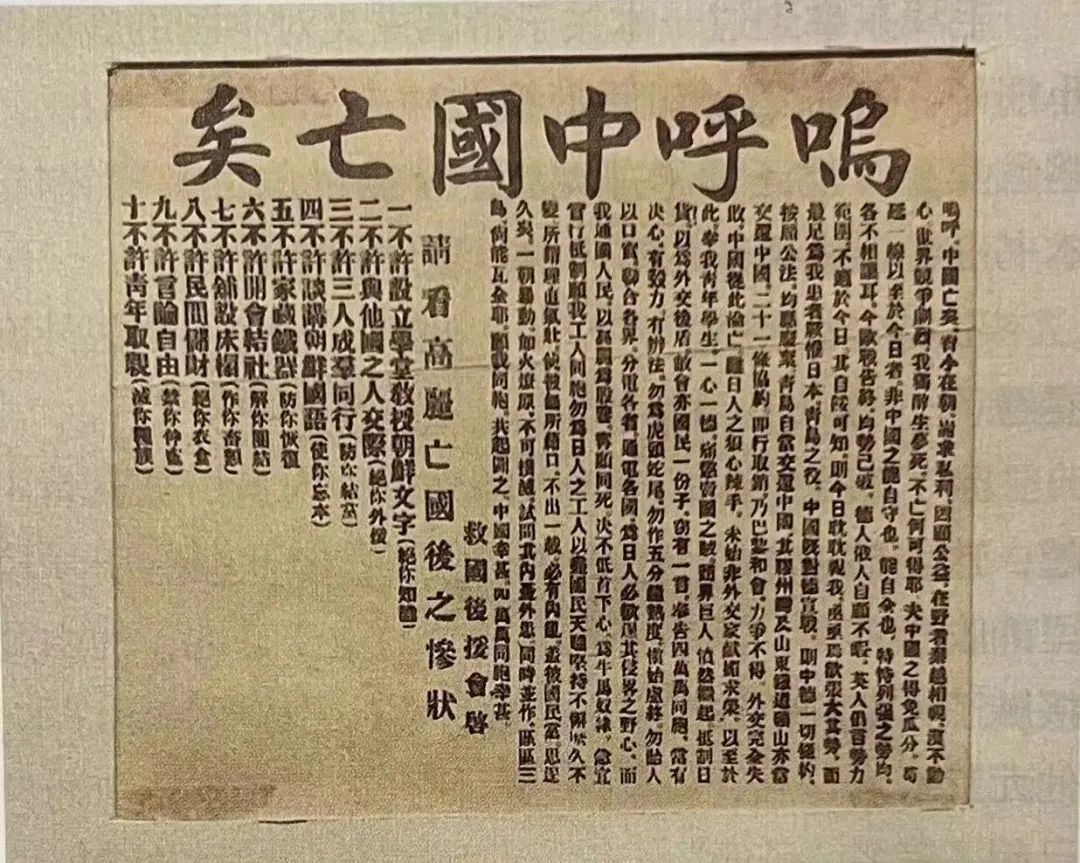 嗚呼中國亡矣
嗚呼,中國亡矣,肉食在朝,崙求私利,罔顧公益,在野者秦越相視,漠不動
心,世界競爭劇烈,我獨醉生夢死,不亡何可得耶,夫中國之得免瓜分,苟
延一線以至於今日者,非中國之能自守也,能自全也,特恃列强之勢均,
各不相讓耳,今歐戰告終,均勢已破,德人俄人自顧不暇,英人仍首勢力
範圍,不遑於今日,其自封可知,則今日耽耽視我,亟亟焉欲張大其勢,而
最足爲我患者,厥惟日本,青島之役,中國旣對德宣戰,則中德一切條約,
按照公法,均應廢棄,青島自當交還中國,其膠州灣及山東鐵道礦山亦當
交還中國,二十一條協約,即行取銷,乃巴黎和會,力爭不得,外交完全失
敗,中國從此淪亡,雖日人之狠心辣手,未始非外交家獻媚求榮,以至於
此,幸我靑年學生,一心一德,痛懲賣國之賊,商界巨人,憤然繼起,抵制日
貨,以爲外交後盾,敝會亦國民一份子,窃有一言,奉告四萬萬同胞,當有
決心,有毅力,有辦法,勿爲虎頭蛇尾,勿作五分鐘熱度,愼始慮終,勿貽人
以口實,聯合各界,分電各省,通電各國,爲日人必欲逞其侵畧之野心,而
我通國人民,以爲殷鑒,寗願同死,決不低首下心,爲牛馬奴隸,急宜
實行抵制,願我工人同胞勿爲日人之工人,以盡國民天職,堅持不懈,久不
變,所謂理直氣壯,使彼無所藉口,不出一載,必有內亂,蓋彼國民黨,思逞
久矣,一朝暴動,如火燎原,不可撲滅,試問其內憂外患,同時並作,區區三
島,尙能瓦全耶,願我同胞,共起圖之,中國幸甚,四萬萬同胞幸甚,
救國後援會啓
請看高麗亡國後之慘狀
一不許設立學堂敎授朝鮮文字(絕你知識)
二不許與他國之人交際(絕你外援)
三不許三人成羣同行(防你結黨)
四不許談講朝鮮國語(使你忘本)
五不許家藏鐵器(防你恢復
六不許開會結社(解你團結)
七不許舖設床榻(作你畜類)
八不許民間儲財(絕你衣食)
九不許言論自由(禁你伸寃)
十不許靑年取親(滅你種族)